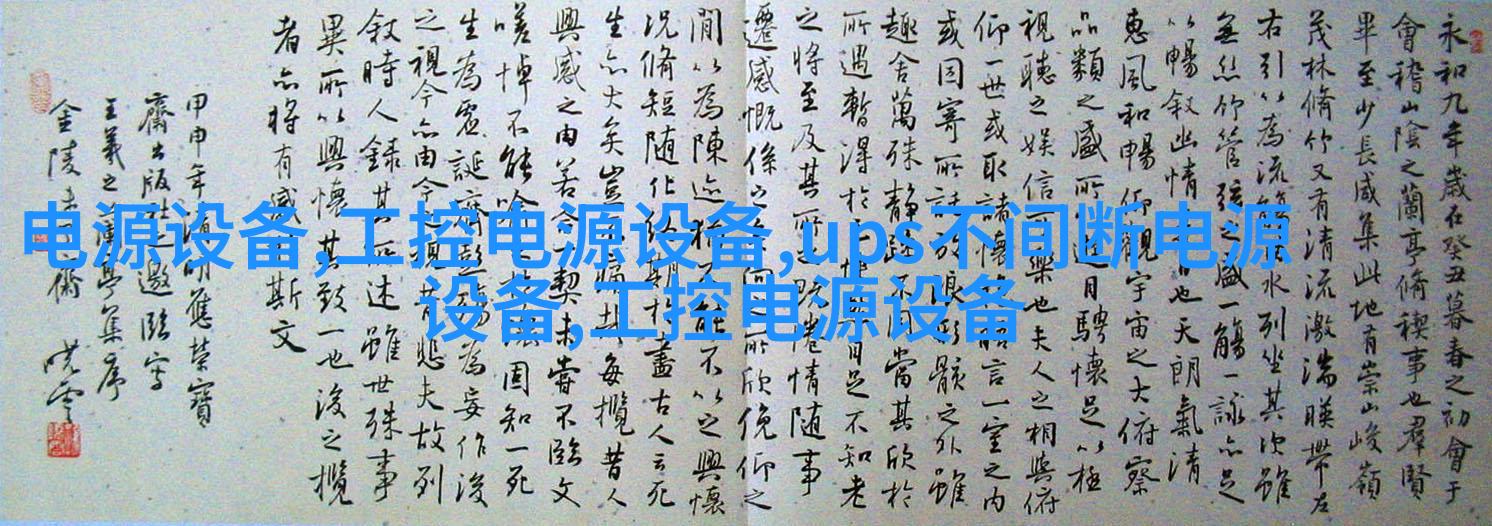 永和九年歲在癸丑暮春之初會于
會稽山陰之蘭亭脩稧事也群賢
畢至少長咸集此地有崇山峻嶺
茂林脩竹又有清流激湍暎帶左
右引以為流觴曲水列坐其次雖
無絲竹管弦之盛一觴一詠亦足
以暢敘幽情是日也天朗氣清
惠風和暢仰觀宇宙之大俯察
品類之盛所以遊目騁懷足以極
視聽之娛信可樂也夫人之相與俯
仰一世或取諸懷抱悟言一室之內
或因寄所託放浪形骸之外雖
趣舍萬殊靜躁不同當其欣於
所遇暫得於己快然自足不知老
之將至及其所之既惓情隨事
遷感慨係之矣向之所欣俛仰之
閒以為陳迹猶不能不以之興懷
況脩短隨化終期於盡古人云死
生亦大矣豈不痛哉每攬昔人
興感之由若合一契未嘗不臨文
嗟悼不能喻之於懷固知一死
生為虛誕齊彭殤為妄作後
之視今亦由今之視昔悲夫故列
敘時人錄其所述雖世殊事
異所以興懷其致一也後之攬
者亦將有感斯文
甲申年清明應榮寶
齋出版社之邀臨寫
王羲之蘭亭集序
金陵
电源设备,工控电源设备,ups不间断电源
设备,工控电源设备